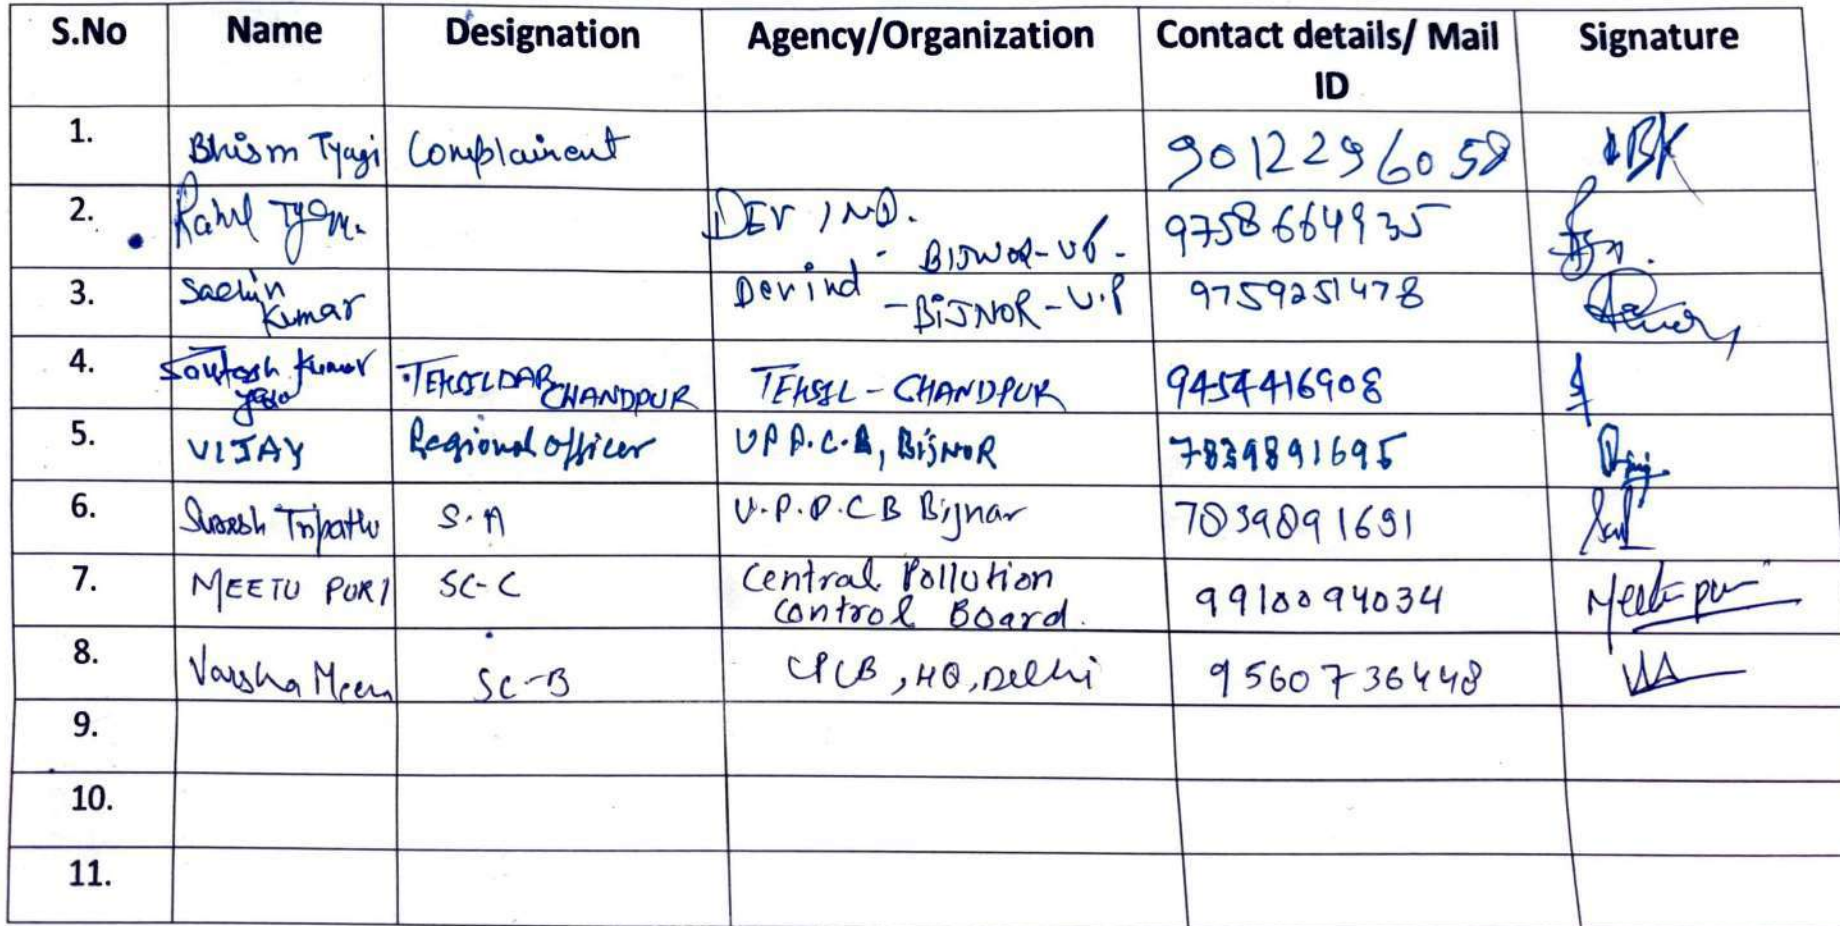 S.No Name Designation Agency/Organization Contact details/ Mail ID Signature
1. Bhism Tyagi Complainent 9012296058 BK
2. Rahul Tyagi DEV IND. - BIJNOR-UP- 9758664935
3. Sachin Kumar Dev ind - BIJNOR - U.P 9759251478
4. Santosh Kumar TEHSILDAR CHANDPUR TEHSIL - CHANDPUR 9454416908
5. VIJAY Regional Officer UPP.C.B, BIJNOR 7839891695
6. Suresh Tripathi S.A U.P.P.C.B Bijnar 7839891691
7. MEETU PURI SC-C Central Pollution Control Board. 9910094034 Meetu puri
8. Varsha Meena SC-B CPCB, HQ, Delhi 9560736448
9.
10.
11.